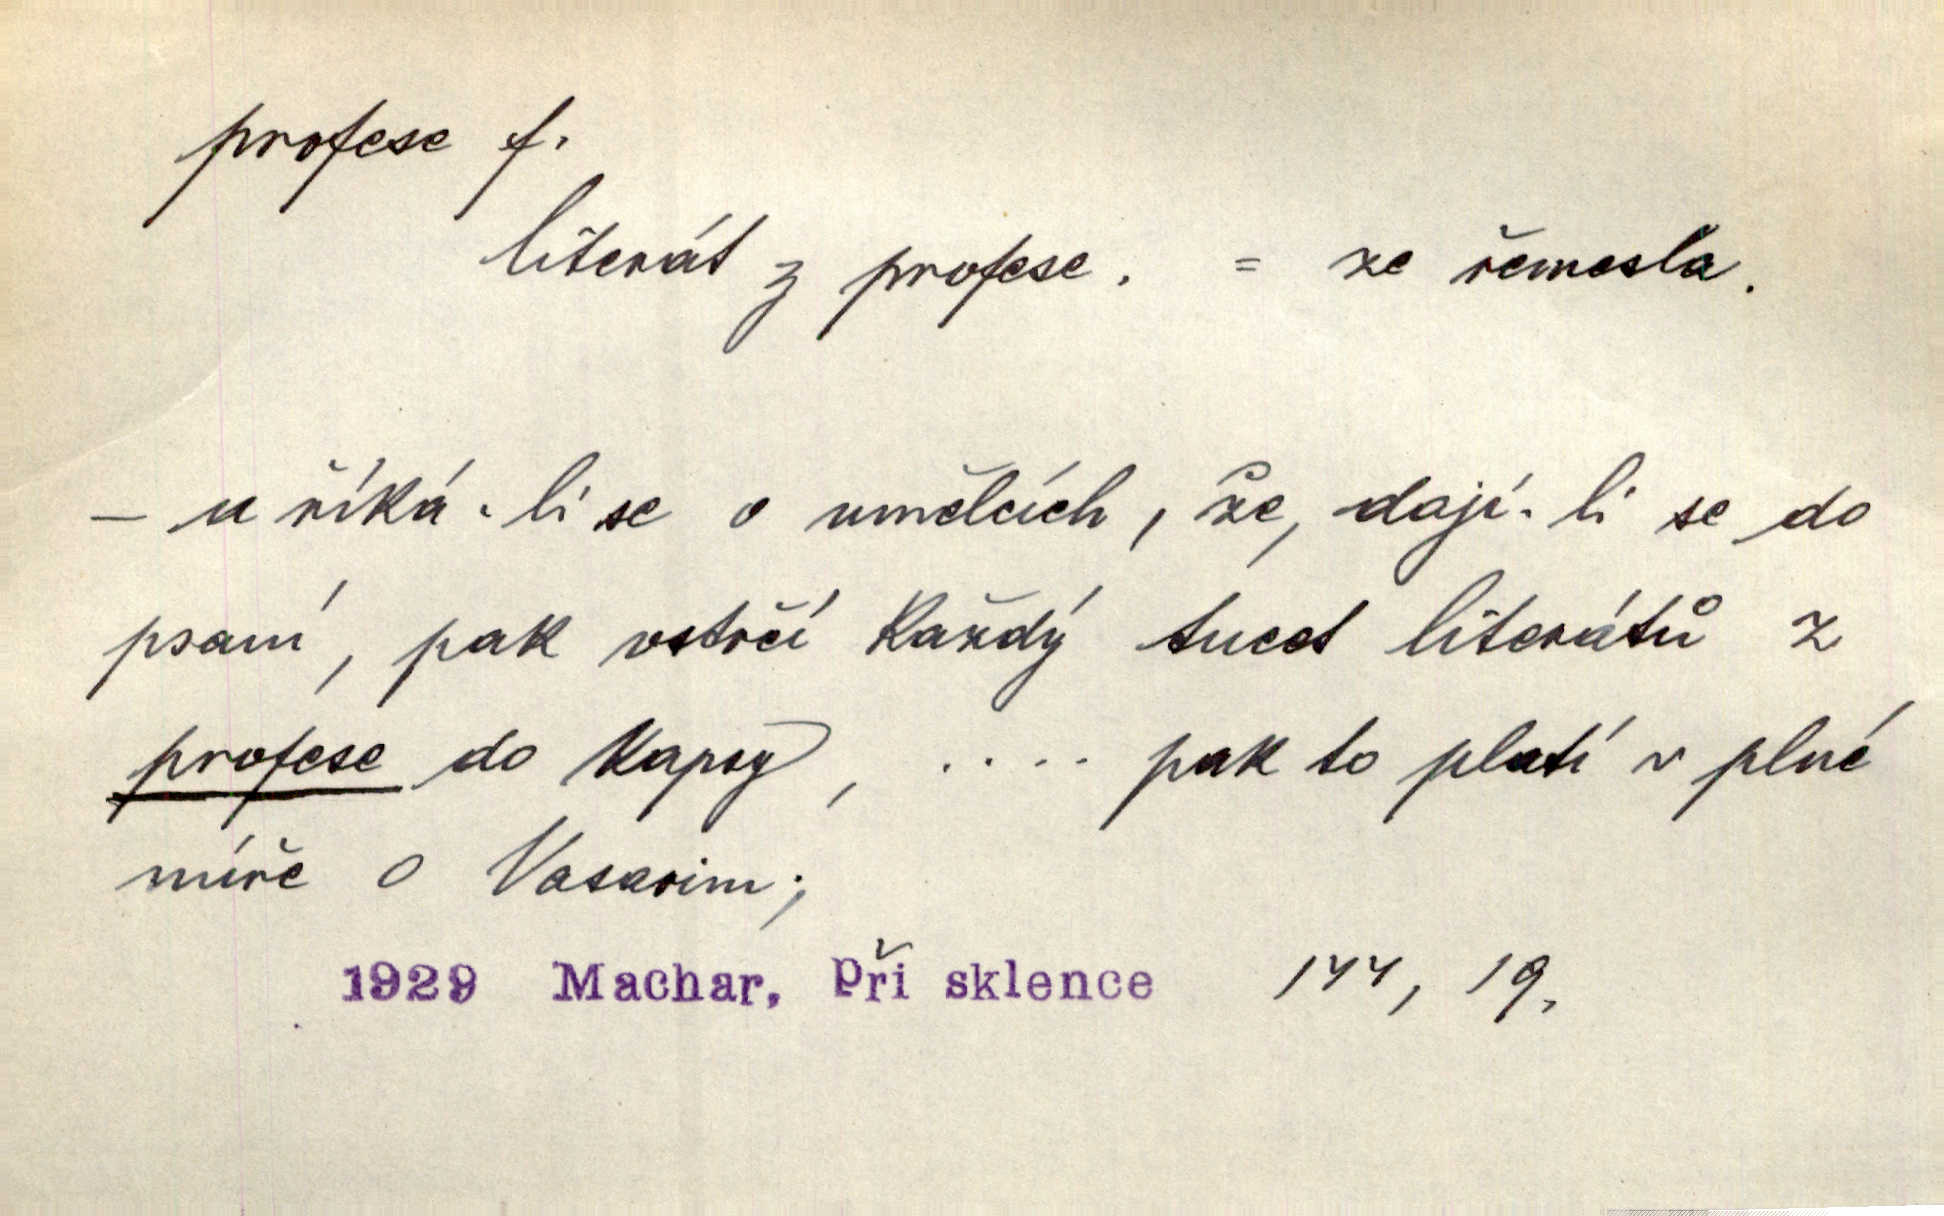 profese f.
literát z profese. = ze řemesla.
– a říká-li se o umělcích, že, dají-li se do
psaní, pak vstrčí každý tucet literátů z
profese do kapsy, .... pak to platí v plné
míře o Vasarim;
1929 Machar, Při sklence 144, 19.